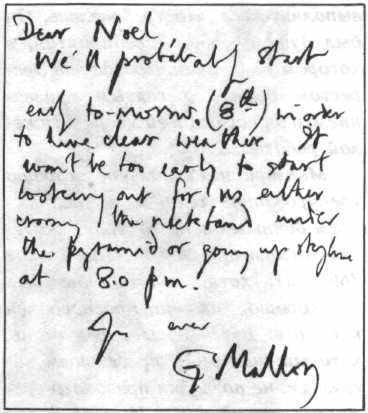 Dear Noel
We'll probably start
early to-morrow (8th) in order
to have clear weather. It
won't be too early to start
looking out for us either
crossing the rockband under
the pyramid or going up skyline
at 8.0 p.m.
Yrs ever
G Mallory